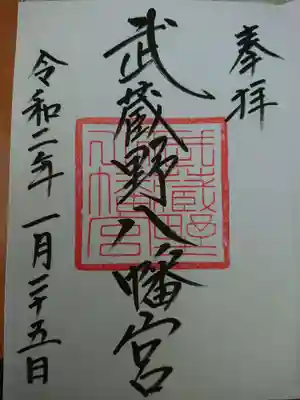 奉拝
武蔵野八幡宮
武蔵野八幡宮
令和二年 一月二十五日